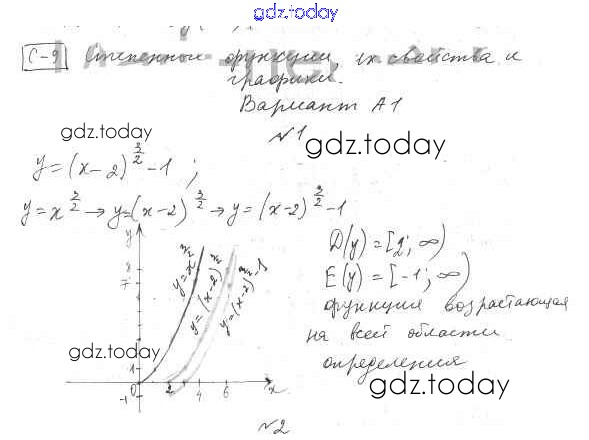 gdz.today
С-9 Степенные функции, их свойства и
графики.
Вариант А1
gdz.today
№1
gdz.today
y=(x-2)^{3/2}-1;
y=x^{3/2} → y=(x-2)^{3/2} → y=(x-2)^{3/2}-1
D(y)=[2; ∞)
E(y)=[-1; ∞)
функция возрастающая
на всей области
определения
y
8
7
y=x^{3/2}
y=(x-2)^{3/2}
y=(x-2)^{3/2}-1
gdz.today
1
0
-1
2
4
6
x
gdz.today
№2